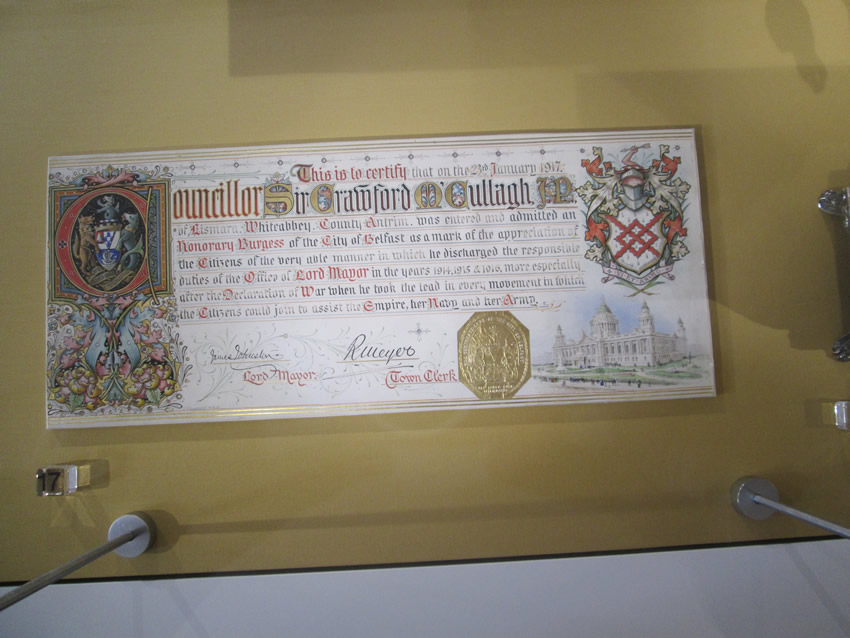 This is to certify that on the 23rd January 1917,
Councillor Sir Crawford M'Cullagh, J.P.,
of Lismara, Whiteabbey, County Antrim, was entered and admitted an
Honorary Burgess of the City of Belfast as a mark of the appreciation of
the Citizens of the very able manner in which he discharged the responsible
duties of the Office of Lord Mayor in the years 1914, 1915 & 1916, more especially
after the Declaration of War when he took the lead in every movement in which
the Citizens could join to assist the Empire, her Navy and her Army.
James Johnston RMeyer
Lord Mayor. Town Clerk
17